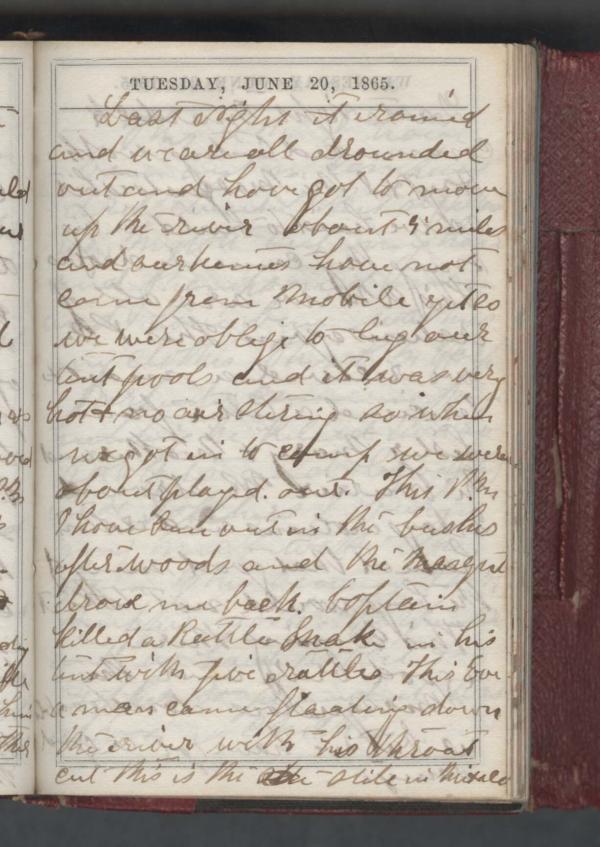 TUESDAY, JUNE 20, 1865.
Last night it rained
and we are all drounded
out and have got to move
up the river about 5 miles
and our teames have not
came from Mobile yet so
we were oblige to lug our
tent pools and it was very
hot & no air stiring so when
we got in to camp we were
about playd. out. This P.M
I have been out in the bushes
after woods and the
drove me back. Captain
killed a Rattle Snake in his
tent with five rattles This Eve
a man came floating down
the river with his throat
cut this is the stile in